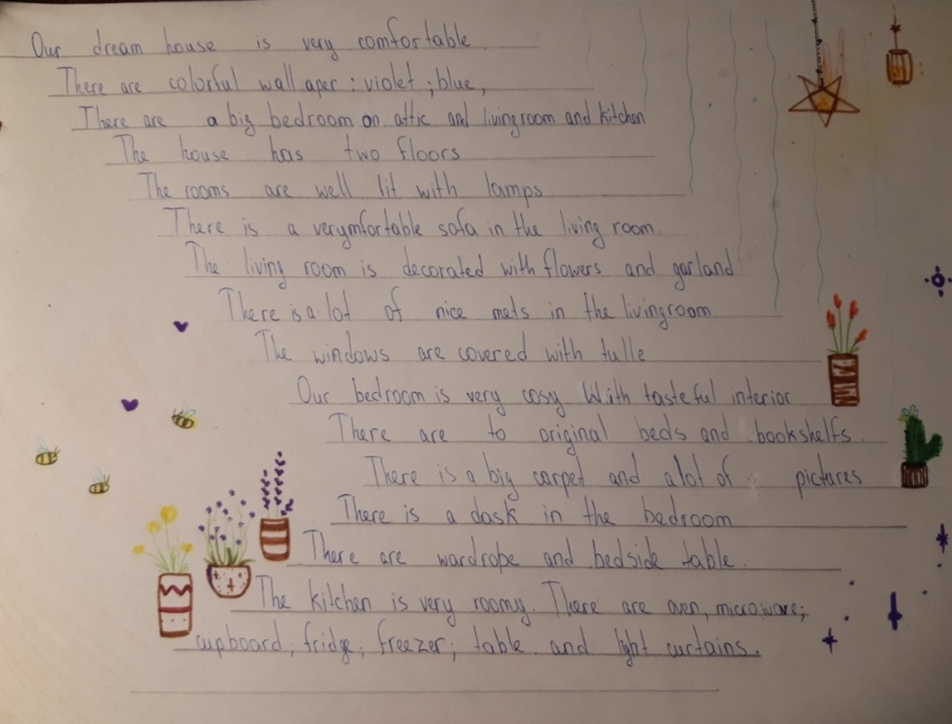 Our dream house is very comfortable.
There are colorful wall aper : violet ; blue,
There are a big bedroom on attic and livingroom and kitchen
The house has two floors
The rooms are well lit with lamps
There is a verymfortable sofa in the living room.
The living room is decorated with flowers and garland
There is a lot of nice mets in the livingroom
The windows are covered with tulle
Our bedroom is very cosy. With tasteful interior
There are to original beds and bookshelfs.
There is a big carpet and alot of pictures
There is a dask in the bedroom
There are wardrobe and bedside table.
The kitchen is very roomy. There are oven, microware;
cupboard; fridge; freezer; table and light curtains.